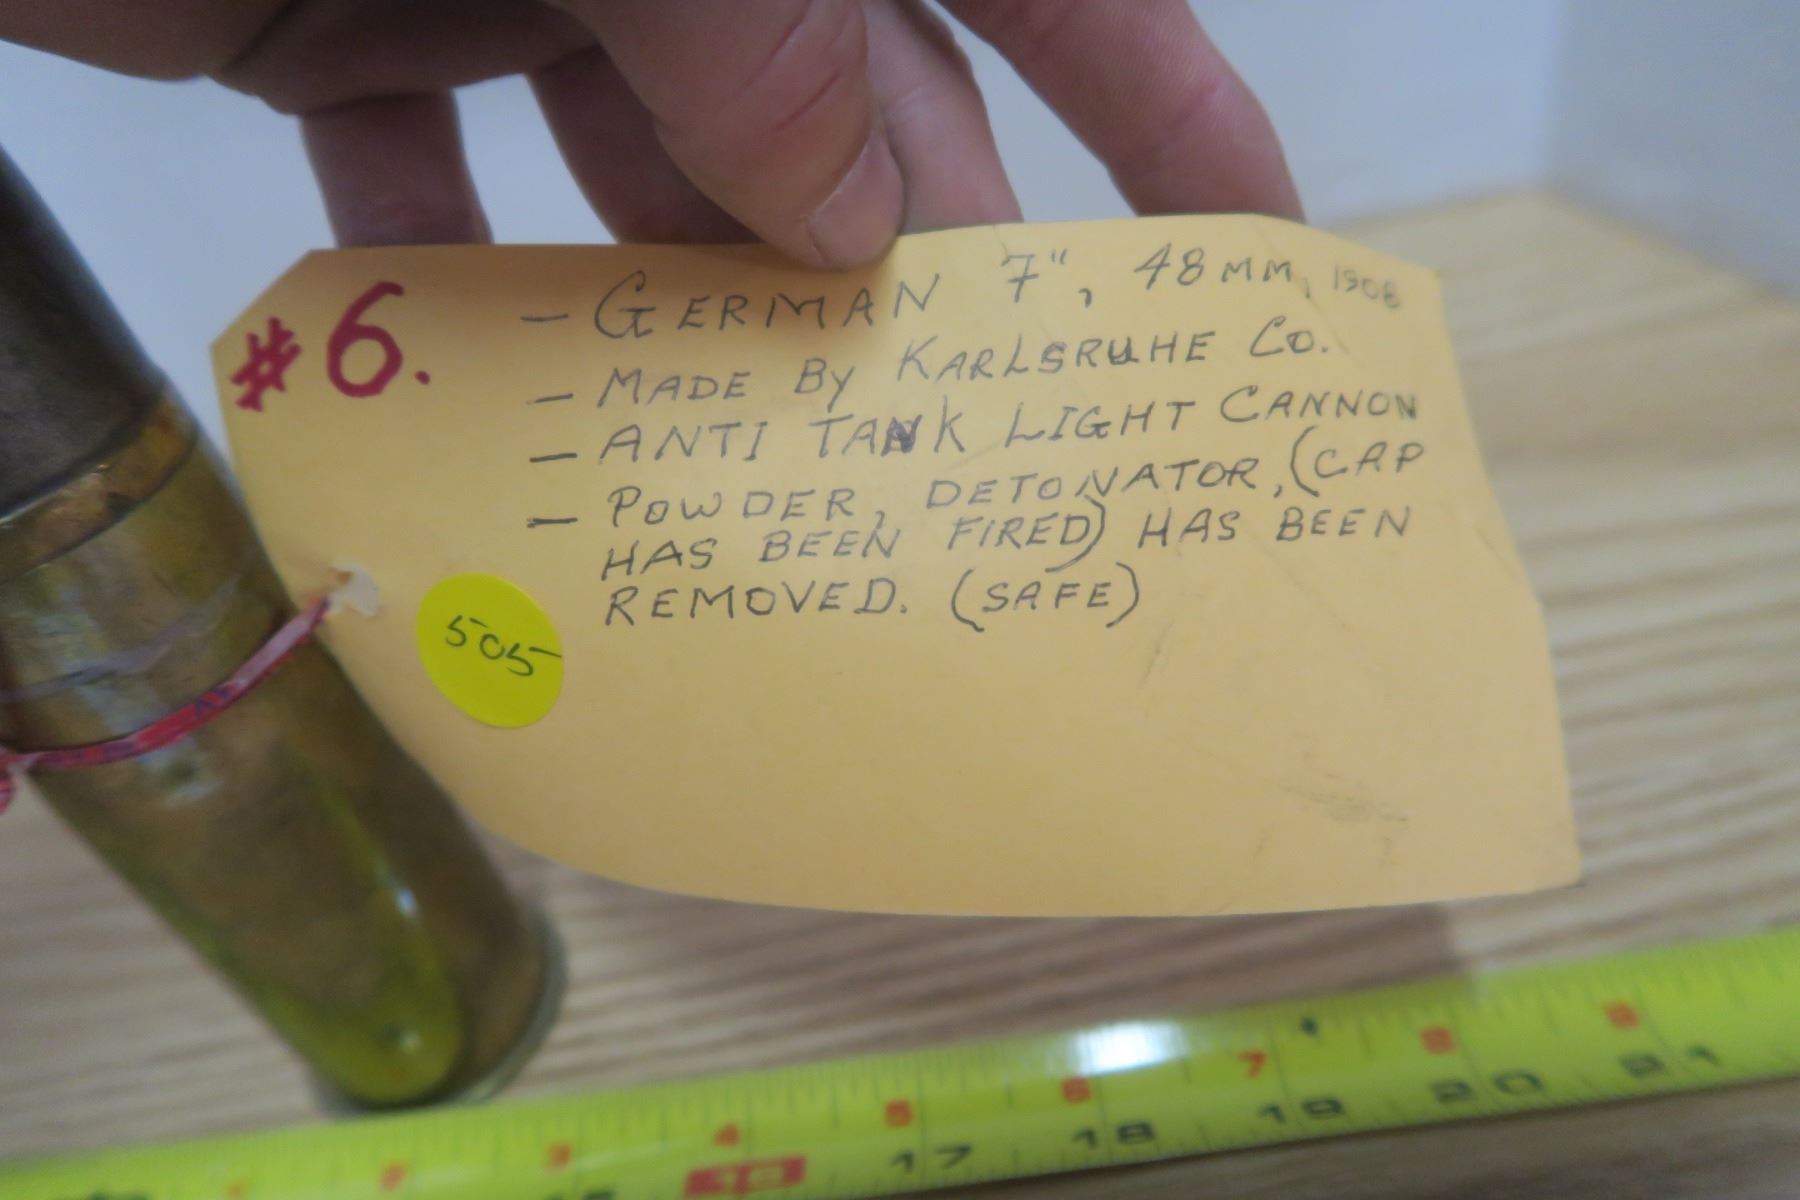 #6.
- GERMAN 7", 48MM, 1908
- MADE BY KARLSRUHE CO.
- ANTI TANK LIGHT CANNON
- POWDER, DETONATOR, (CAP
HAS BEEN FIRED) HAS BEEN
REMOVED. (SAFE)
505
1 2 3 4 5 6 7 8 9
17 18 19 20 21